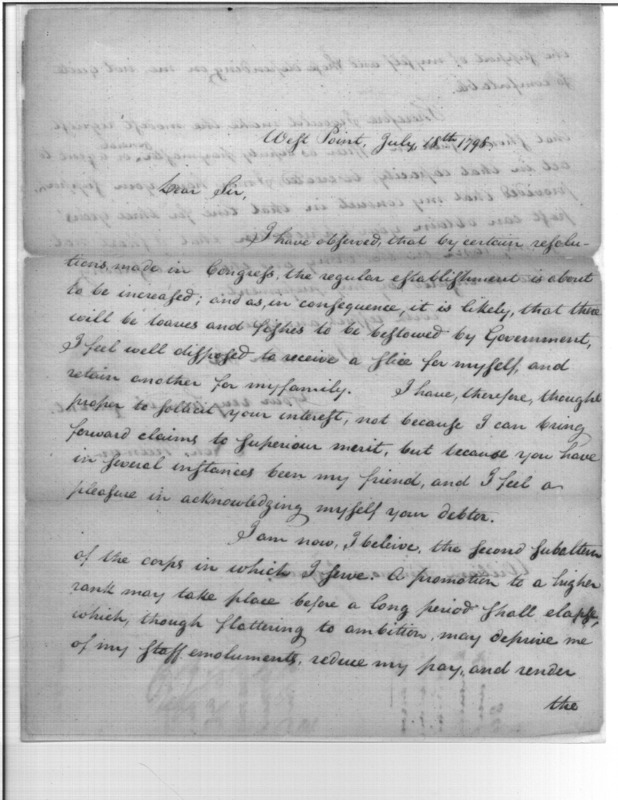 West Point, July, 18th 1798
Dear Sir,
I have observed, that by certain resolu-
tions made in Congress, the regular establishment is about
to be increased; and as, in consequence, it is likely, that there
will be loaves and fishes to be bestowed by Government,
I feel well disposed to receive a slice for myself, and
retain another for my family. I have, therefore, thought
proper to solicit your interest, not because I can bring
forward claims to superiour merit, but because you have
in several instances been my friend, and I feel a
pleasure in acknowledging myself your debtor.
I am now, I beleive, the second subaltern
of the corps in which I serve. A promotion to a higher
rank may take place before a long period shall elapse,
which, though flattering to ambition, may deprive me
of my staff emoluments, reduce my pay, and render
the